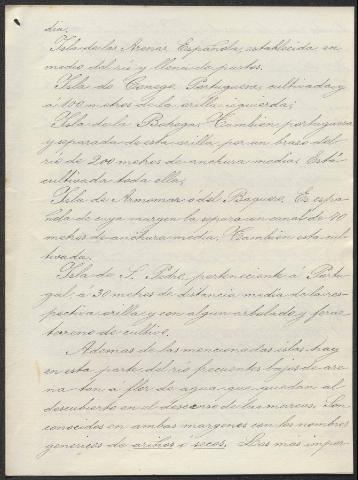 dia.
Isla de las Arenas. Española, establecida en
medio del río y llena de pastos.
Isla do Conego. Portuguesa, cultivada y
á 100 metros de la orilla izquierda;
Isla de la Bohega. También portuguesa
y separada de esta orilla por un brazo del
río de 200 metros de anchura media. Está
cultivada toda ella;
Isla de Amorrar ó del Baquero. Es espa-
ñola de cuya margen la separa un canal de 70
metros de anchura media. También esta cul-
tivada.
Isla de S. Pedro, perteneciente á Portu-
gal; á 30 metros de distancia media de la res-
pectiva orilla y con algun arbolado y feraz
terreno de cultivo.
Ademas de las mencionadas islas, hay
en esta parte del río frecuentes bajos de are-
na tan á flor de agua, que quedan al
descubierto en el descenso de las mareas. Son
conocidos en ambas margenes con los nombres
genéricos de ariños ó secos. Los más impor-